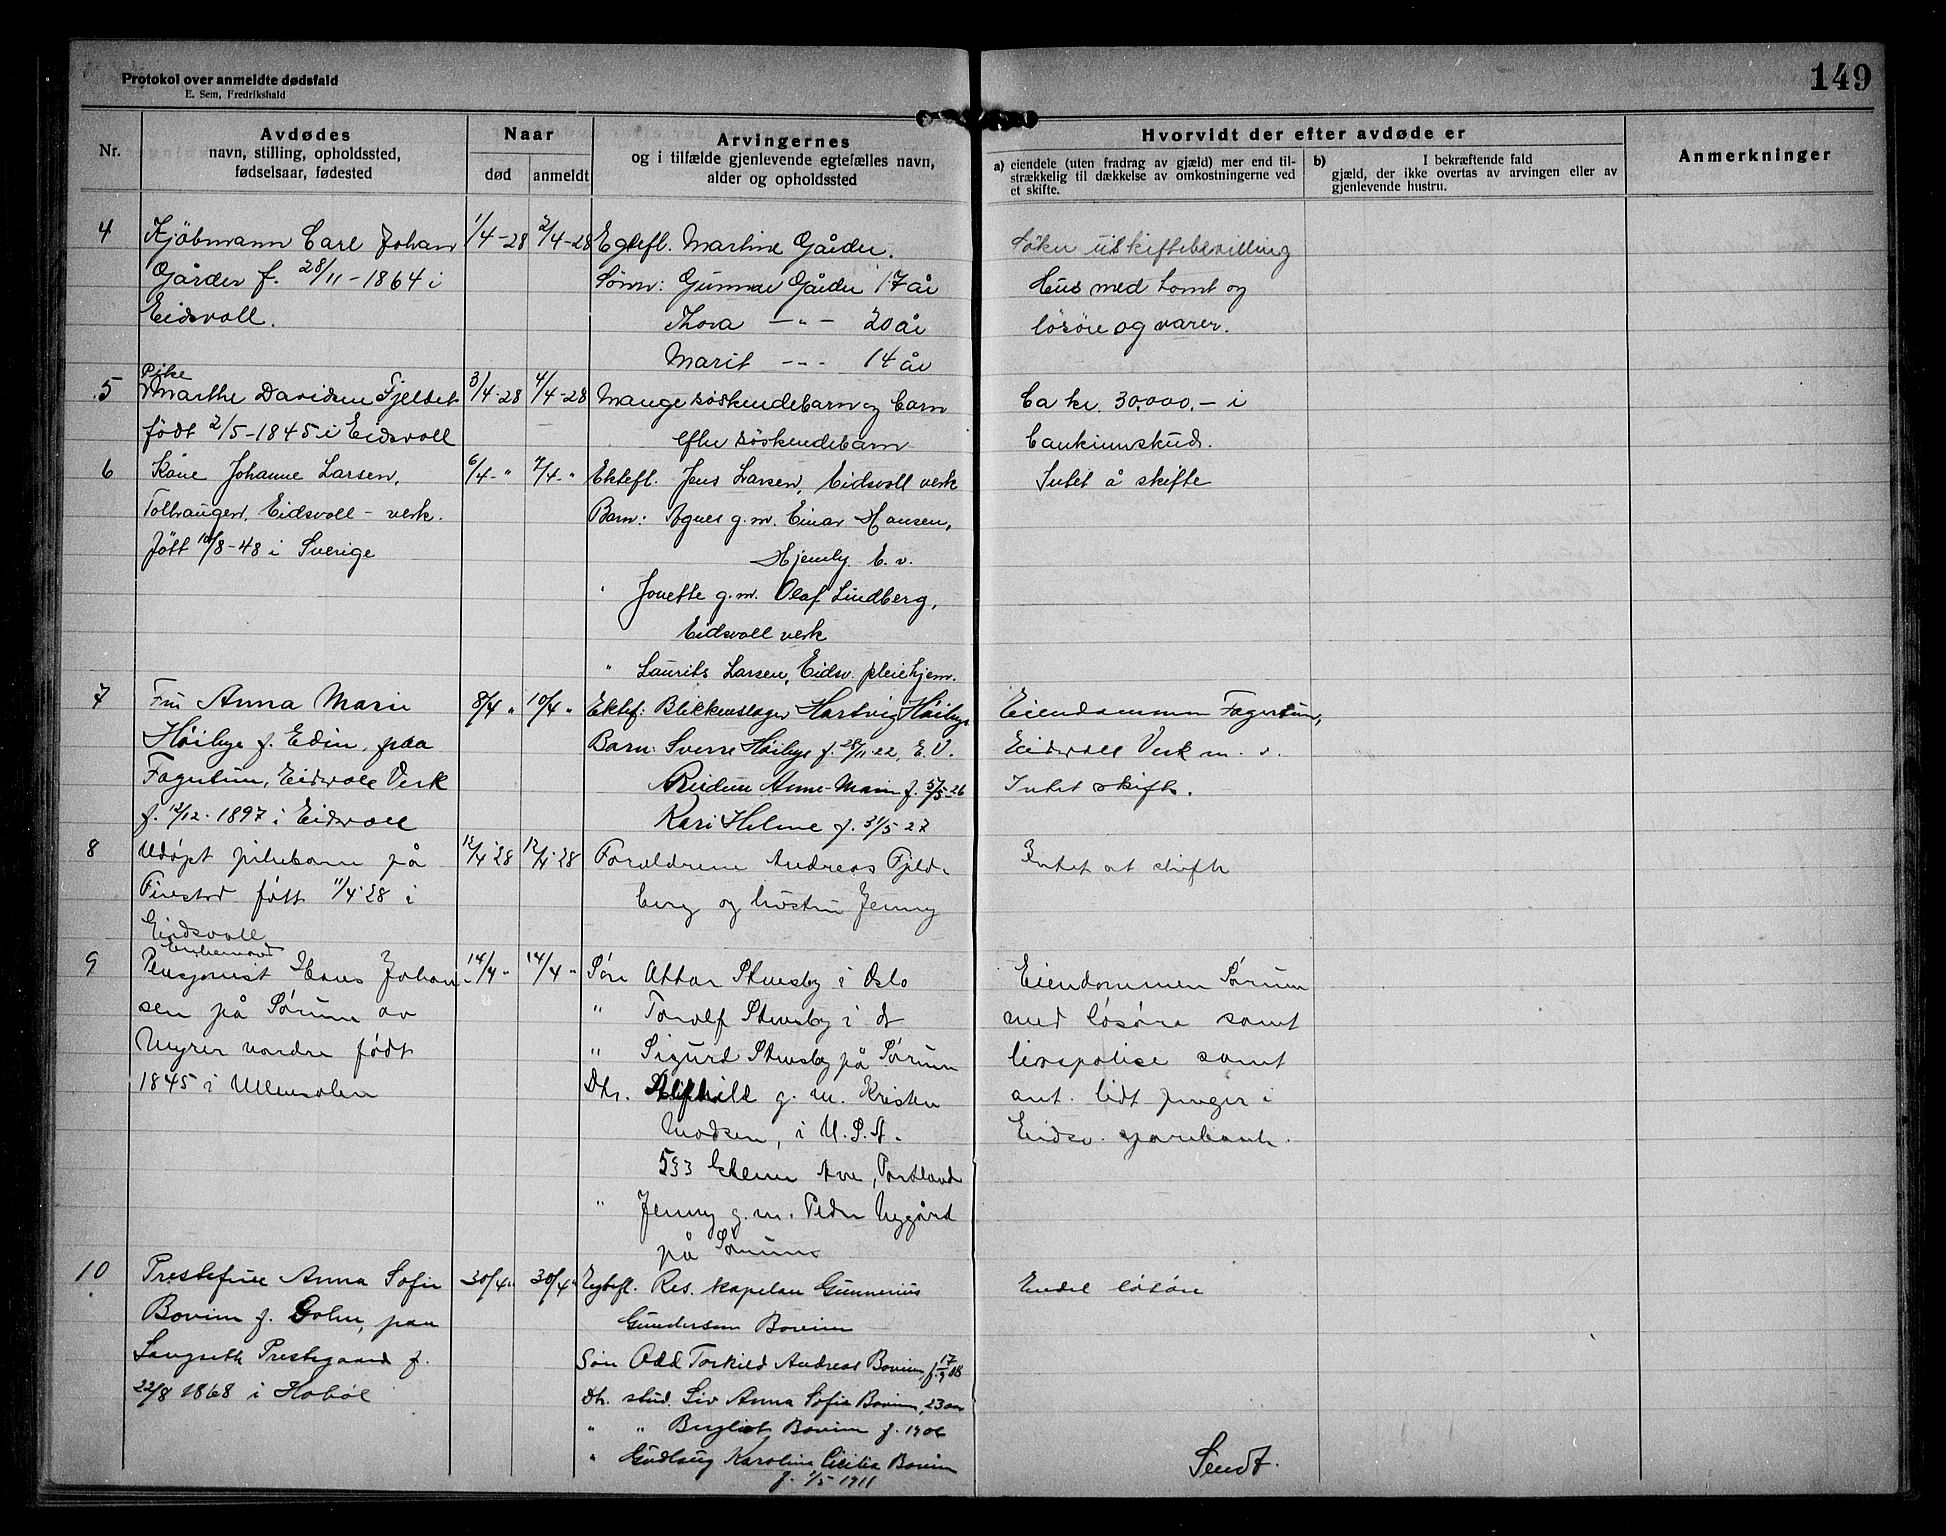 Protokol over anmeldte dødsfald
E. Sem, Fredrikshald
149
Nr.
Avdødes
navn, stilling, opholdssted,
fødselsaar, fødested
Naar
død
anmeldt
Arvingernes
og i tilfælde gjenlevende egtefælles navn,
alder og opholdssted
Hvorvidt der efter avdøde er
a) eiendele (uten fradrag av gjæld) mer end til-
strækkelig til dækkelse av omkostningerne ved
et skifte.
b) I bekræftende fald
gjæld, der ikke overtas av arvingen eller av
gjenlevende hustru.
Anmerkninger
4
Kjøbmann Carl Johan
Gårder f. 28/11-1864 i
Eidsvoll.
1/4-28
2/4-28
Egtefl. Martine Gårder.
Sønn: Gunnar Gårder 17 år
Thora -"- 20 år
Marit -"- 14 år
Søker uskiftebevilling
Hus med tomt og
løsøre og varer.
5
Pike
Marthe Davidsen Fjeldet
født 2/5-1845 i Eidsvoll
3/4-28
4/4-28
Mange søskendebarn og barn
efter søskendebarn
Ca kr. 30.000.- i
bankinnskud.
6
Kone Johanne Larsen,
Eidsvoll - verk.
født 10/8-48 i Sverige
6/4- "
7/4- "
Ektefl. Jens Larsen, Eidsvoll verk
Barn: Agnes g.m. Einar Hansen,
Hjemly E. v.
" Jonette g.m. Olaf Lindberg,
Eidsvoll verk
" Laurits Larsen, Eidsv. pleiehjem.
Intet å skifte
7
Fru Anna Marie
Høibye f. Edin, paa
Fagertun, Eidsvoll Verk
f. 12/12-1897 i Eidsvoll
8/4 "
10/4 "
Ektef: Blikkenslager Hartvig Høibye
Barn: Sverre Høibye f. 28/11-22, E.V.
Reidun Anne-Marie f. 5/5-26
Kari Helene f. 31/5 27
Eiendommen Fagertun,
Eidsvoll Verk m. v.
Intet skifte.
8
Udøpt pikebarn på
Finstad født 11/4-28 i
Eidsvoll
12/4-28
12/4-28
Forældrene Andreas Fjeld-
berg og hustru Jenny
Intet at skifte
9
Enkemand
Pensjonist Hans Johan
sen på Sørum av
Myrer nordre født
1845 i Ullensaker
14/4 "
14/4 "
Søn Ottar Stensby i Oslo
" Torolf Stensby i dt
" Sigurd Stensby på Sørum
Dtr. Alfhild g. m. Kristen
Madsen, i U.S.A.
533 Ave, Portland
" Jenny g.m. Peder Nygård
på Sørum
Eiendommen Sørum
med løsøre samt
livspolise samt
ant. lidt penger i
Eidsv. sparebank.
10
Prestefrue Anna Sofie
Bovim f. Golm, paa
Langseth Prestegaard f.
22/8 1868 i Hobøl
30/4 "
30/4 "
Egtefl. Res. kapelan Gunnerius
Gundersen Bovim
Søn Odd Torkild Andreas Bovim, f. 17/9 08
Dtr. stud. Liv Anna Sofie Bovim, 23 aar
" " Bergliot Bovim f. 1906
" Gudlaug Karoline Cicilia Bovim
f. 1/5 1911
Endel løsøre
Sendt.